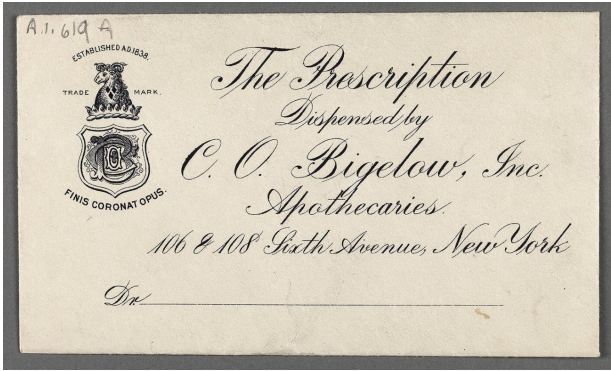 A.1.619 A
ESTABLISHED A.D. 1838.
TRADE MARK.
FINIS CORONAT OPUS.
The Prescription
Dispensed by
C. O. Bigelow, Inc.
Apothecaries.
106 & 108 Sixth Avenue, New York
Dr.